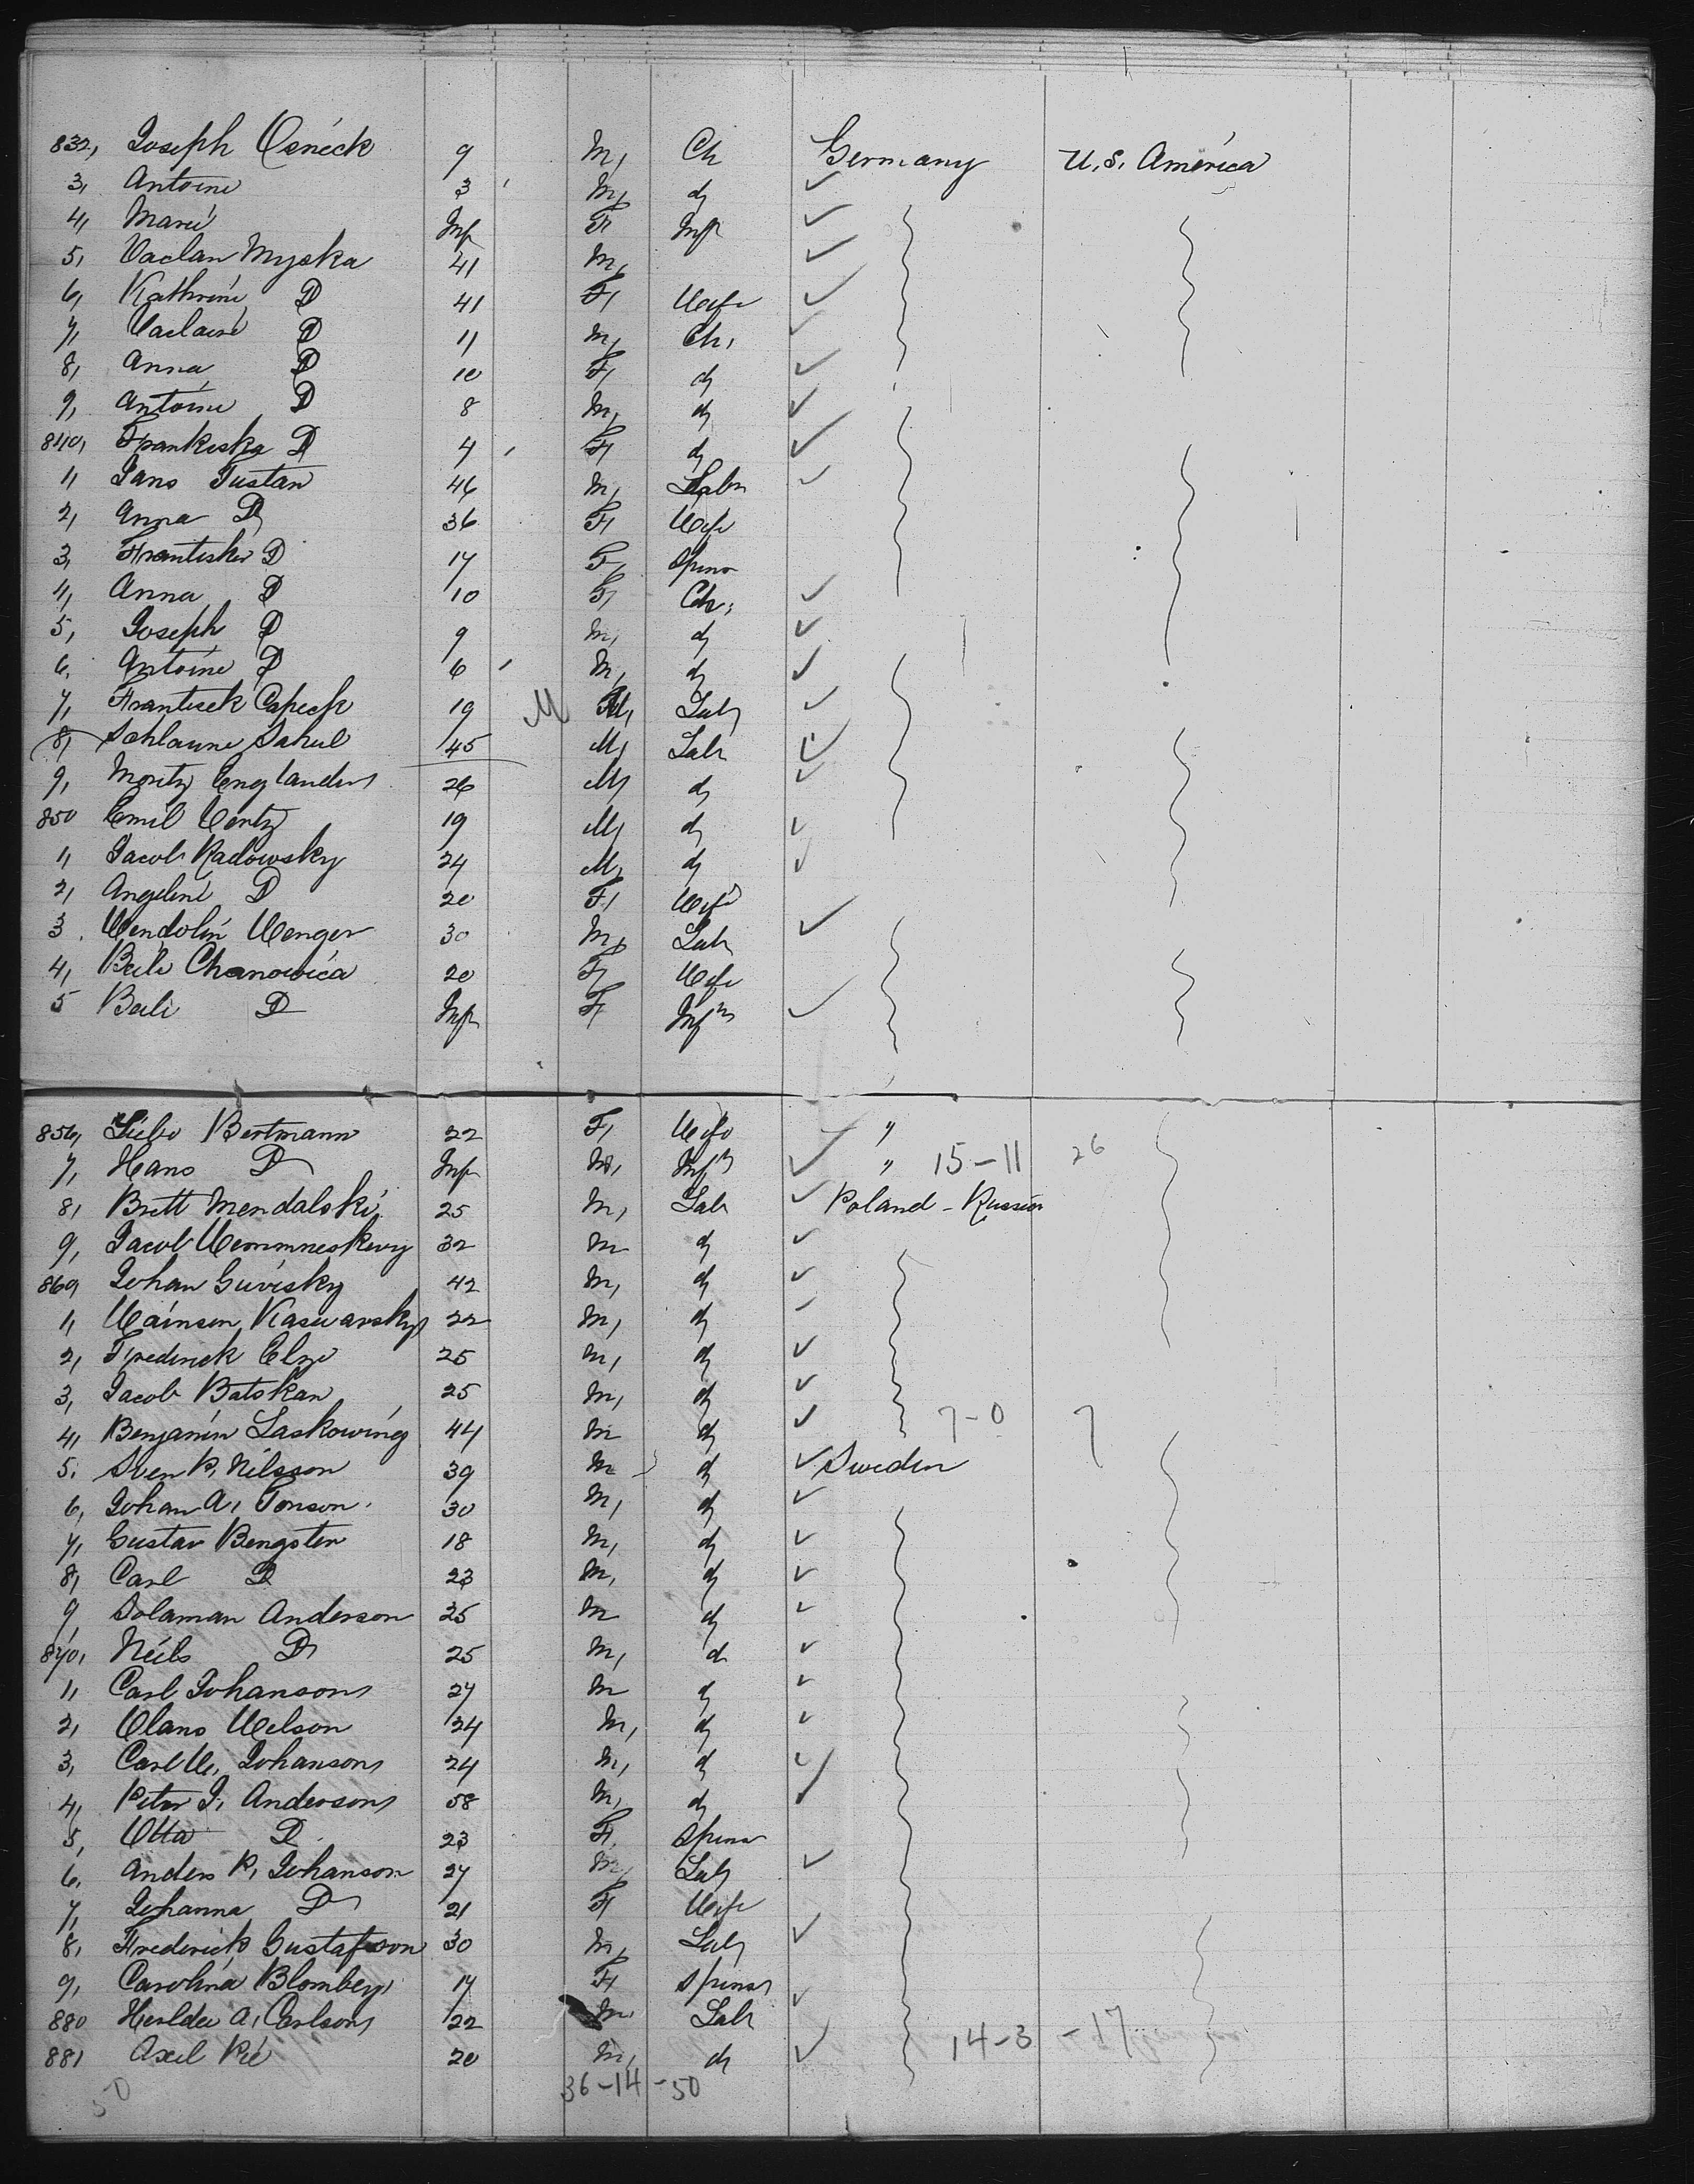 832, Joseph Osneck 9 M, Ch Germany U.S. America
3, Antoine 3 M, do
4, Marie Inf F, Inf
5, Vaclav Myska 41 M,
6, Kathrine D 41 F, Wife
7, D 11 M, Ch,
8, Anna D 10 F, do
9, Antoine D 8 M, do
840, Frankiska D 4 F, do
1, Jans Tustan 46 M, Labr
2, Anna D 36 F, Wife
3, Frantisker D 17 F, Spins
4, Anna D 10 F, Ch,
5, Joseph D 9 M, do
6, Antoine D 6 M, do
7, Frantisek Capeck 19 M M, Lab
8, Sahul 45 M, Labr
9, Moritz Englanders 26 M, do
850 Emil Wertz 19 M, do
1, Jacob Radowsky 24 M, do
2, Angeline D 20 F, Wife
3, Wendolin Wenger 30 M, Lab
4, Beile Chanowica 20 F, Wife
5 Beili D Inf F, Infn
856, Liebe Bertmann 22 F, Wife "
7, Hans D Inf M, Infn " 15-11 26
8, Britt Mendalski 25 M, Lab Poland - Russia
9, Jacob 32 M do
860, Johan Guvisky 42 M, do
1, Wainsen Kaswarsky 22 M, do
2, Frederick Elze 25 M, do
3, Jacob Batskan 25 M, do
4, Benjamin Laskowing 44 M do 7-0 7
5, Sven P, Nilsson 39 M do Sweden
6, Johan A, Ponson 30 M, do
7, Gustav Bengsten 18 M, do
8, Carl D 23 M, do
9, Solaman Anderson 25 M do
870, Neils D 25 M, do
1, Carl Johansons 27 M do
2, Olans Welson 24 M, do
3, Carl W, Johansons 24 M, do
4, Peter J, Andersons 58 M, do
5, Otta D 23 F, Spins
6, Anders P, Johanson 27 M, Lab
7, Johanna D 21 F, Wife
8, Frederick Gustafson 30 M, Lab
9, Carolina Blomberg 17 F, Spins
880 A, Carlsons 22 M Lab
881 Axel Pie 20 M, do 14-3 - 17
50 36-14-50